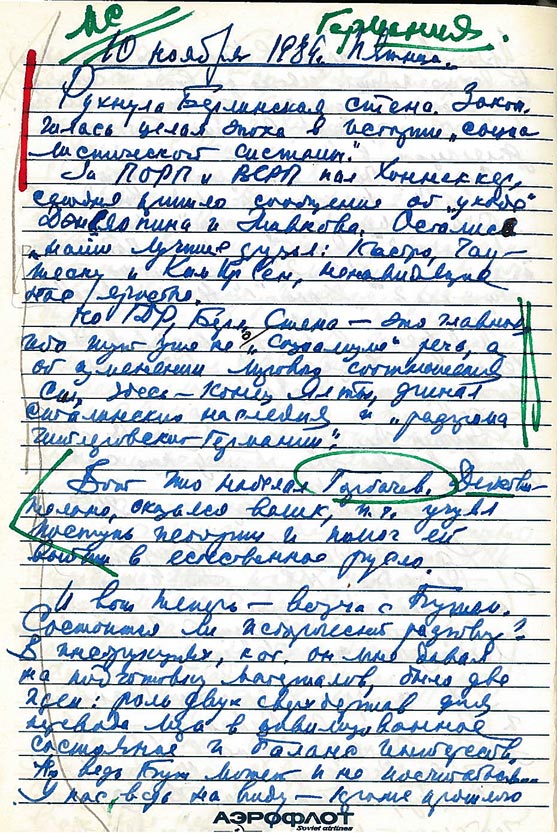 МС
Германия.
10 ноября 1989г. Пятница.
Рухнула Берлинская стена. Закон-
чилась целая эпоха в истории „социа
листической системы".
За ПОРП и ВСРП пал Хоннеккер,
сегодня пришло сообщение об „уходе"
Дэн Сяопина и Живкова. Остались
„наши лучшие друзья": Кастро, Чау-
шеску и Ким Ир Сен, ненавидящие
нас яростно.
Но ГДР, Берл. Стена – это главное
ибо тут уже не о „социализме" речь, а
об изменении мирового соотношения
сил, здесь – конец Ялты, финал
сталинского наследия и „разгрома
гитлеровской Германии".
Вот что наделал Горбачев. Действи-
тельно, оказался велик, т.к. учуял
поступь истории и помог ей
выйти в естественное русло.
И вот теперь – встреча с Бушем.
Состоится ли исторический разговор?
В инструкциях, кот. он мне давал
на подготовку материалов, было две
идеи: роль двух сверхдержав для
привода мира в цивилизованное
состояние и баланс интересов.
Но ведь Буш может и не посчитаться
У нас ведь на виду – кроме прошлого
АЭРОФЛОТ
Soviet airlines